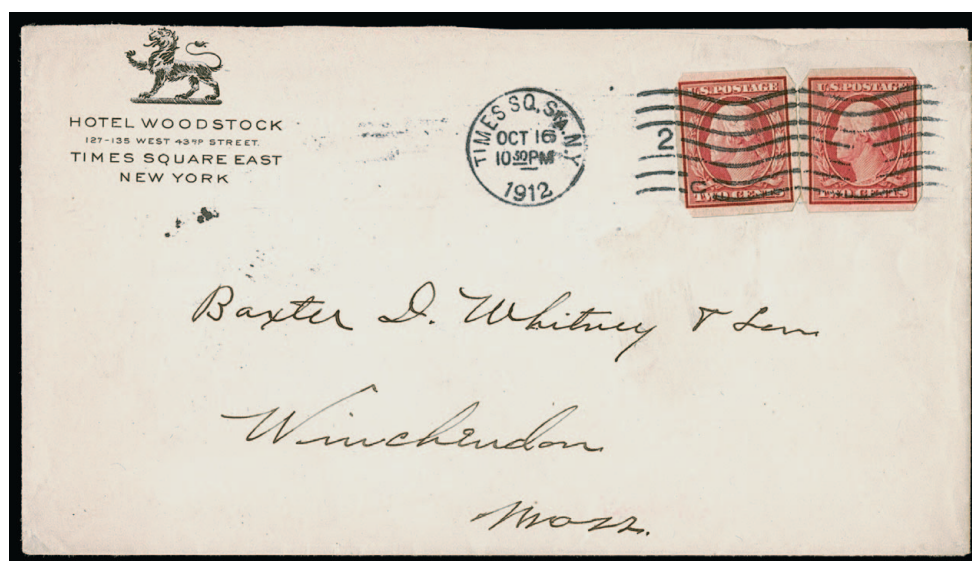 HOTEL WOODSTOCK
127-135 WEST 43RD STREET.
TIMES SQUARE EAST
NEW YORK
TIMES SQ. STA. N.Y.
OCT 16
10 30 PM
1912
2
C
U.S. POSTAGE
TWO CENTS
U.S. POSTAGE
TWO CENTS
Baxter D. Whitney & Son
Winchendon
Mass.